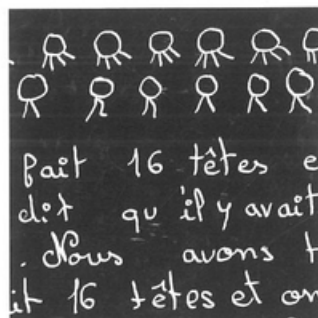 fait 16 têtes e
dit qu'il y avait
. Nous avons t
it 16 têtes et on